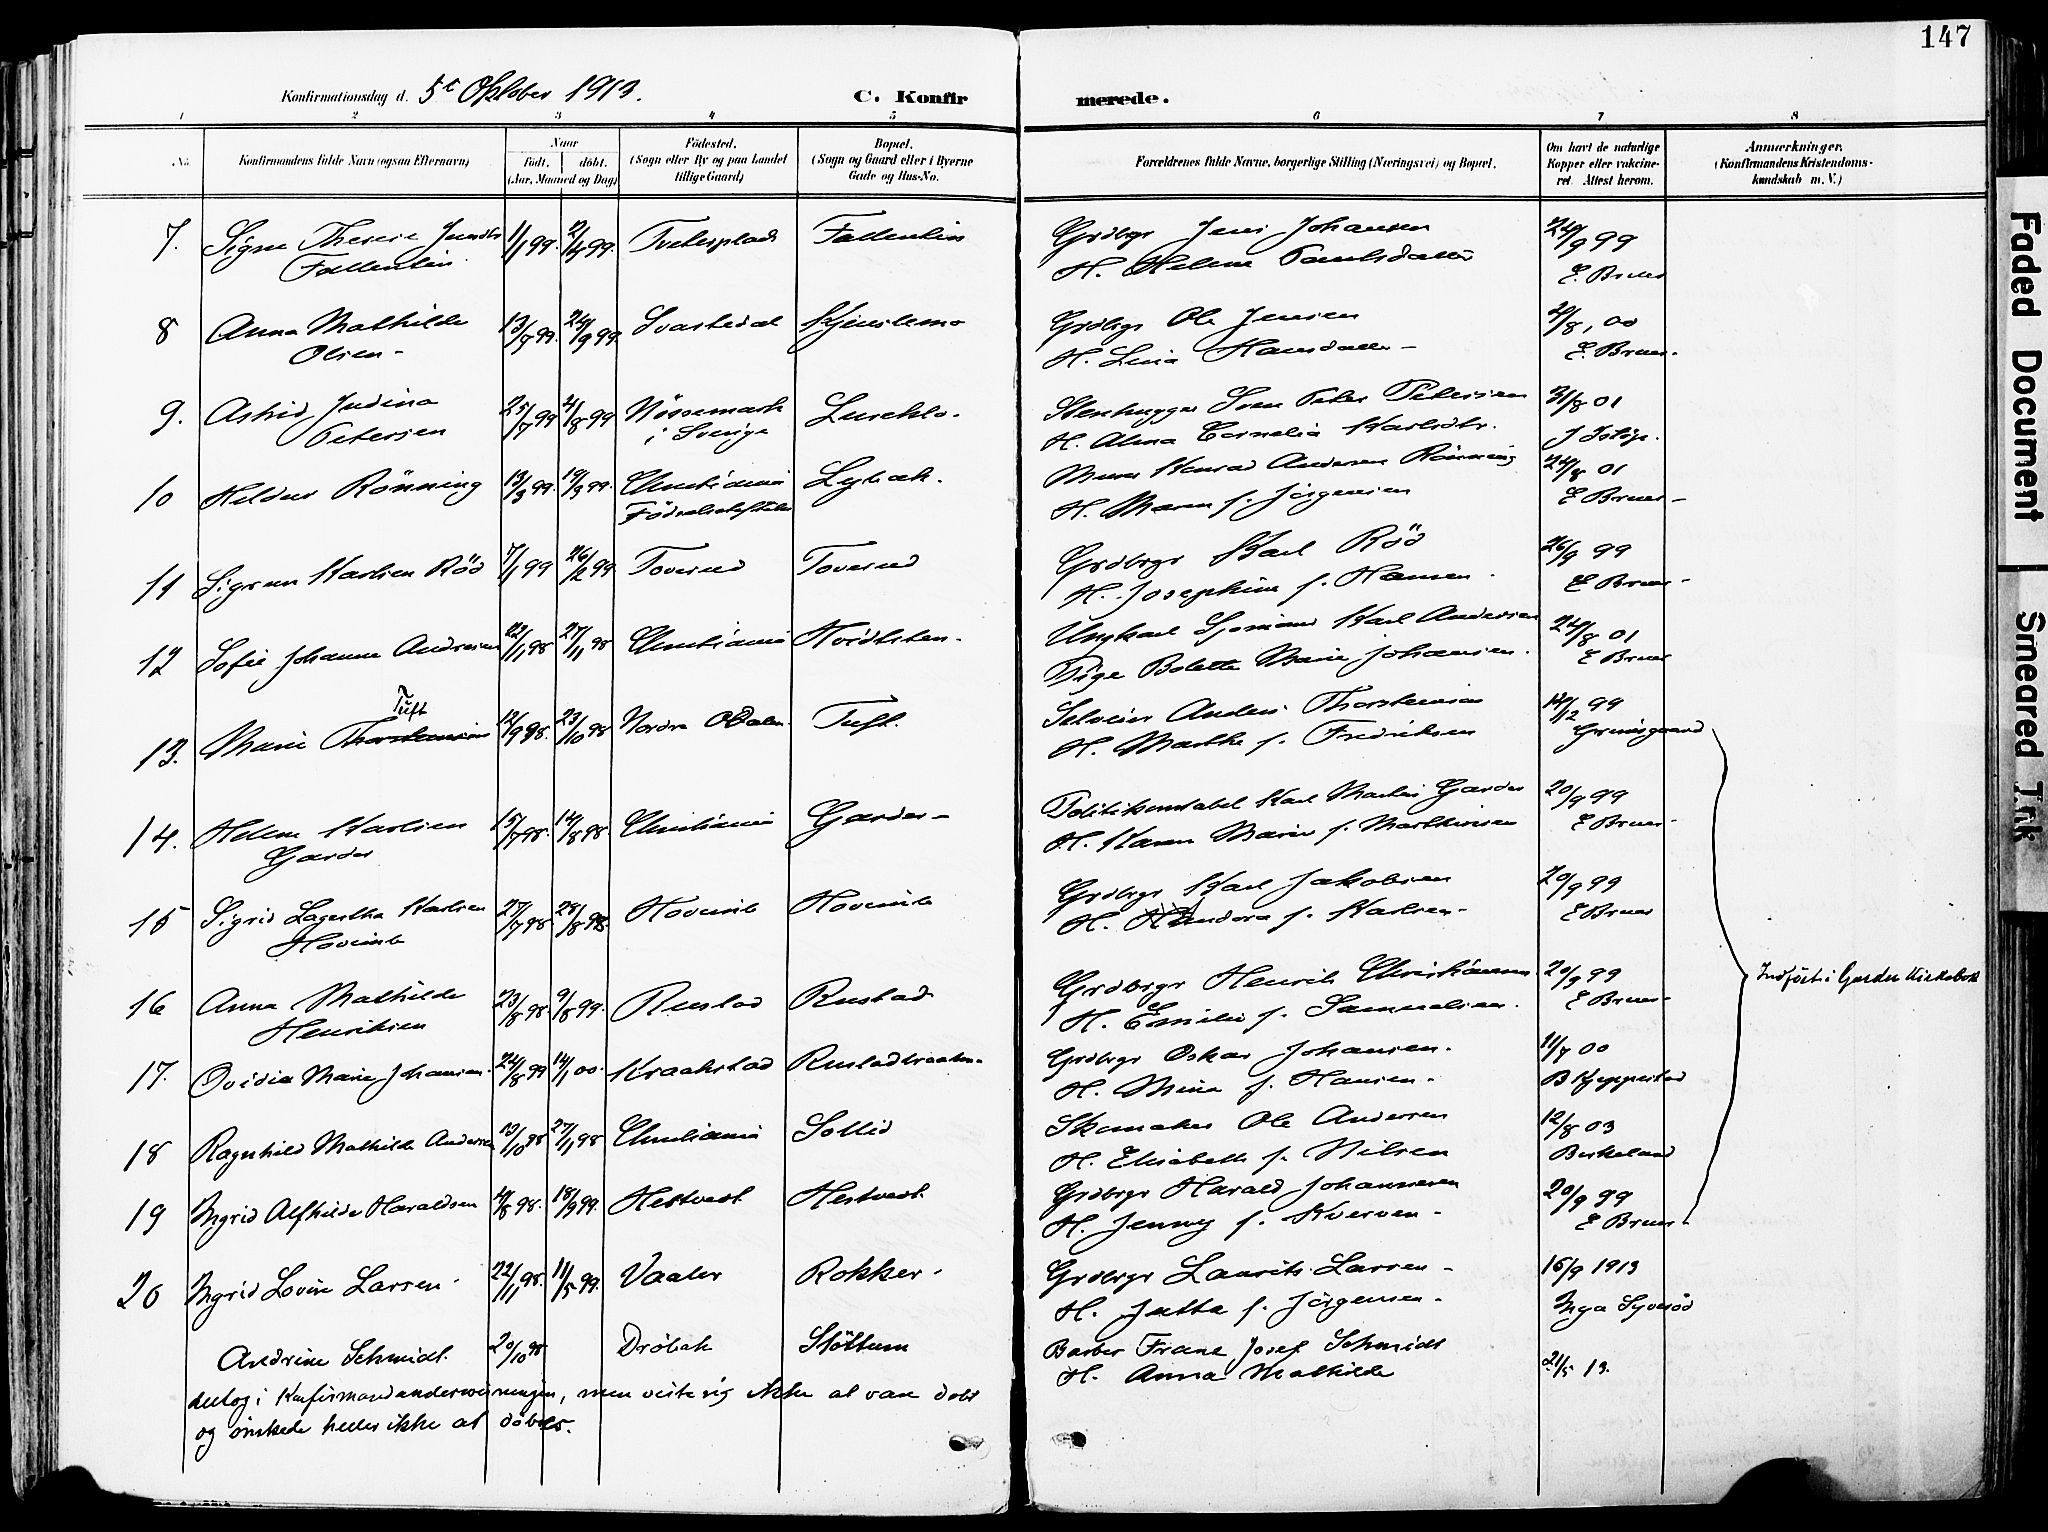 147
Konfirmationsdag d. 5t Oktober 1913.
C. Konfir
merede.
1 2 3 4 5 6 7 8
No.
Konfirmandens fulde Navn (ogsaa Efternavn)
Naar
født. døbt.
(Aar, Maaned og Dag)
Fødested.
(Sogn eller By og paa Landet
tillige Gaard)
Bopæl.
(Sogn og Gaard eller i Byerne
Gade og Hus-No.
Forældrenes fulde Navne, borgerlige Stilling (Næringsvei) og Bopæl.
Om havt de naturlige
Kopper eller vakcine-
ret. Attest herom.
Anmærkninger.
(Konfirmandens Kristendoms-
kundskab m. V.)
7. Signe Therese Jensdtr 1/1 99. 2/4 99. Tveterplads Fallentin Grdbrgr Jens Johansen 24/9 99
Fallentin. H. Helene Paulsdatter E. Bruer
8 Anna Mathilde 13/7 99. 24/9 99. Svartedal Kjenslemo Grdbrgr Ole Jensen 2/8, 00
Olsen- H. Lina Hansdatter- E. Bruer.
9. Astrid Judina 25/7 99 4/8 99 Nössemark Stenhugger Sven Peter Petersen 31/8 01
Petersen i Sverige H. Alma Cornelia Karlsdtr.
10 Heldur Rönning 13/3 99. 19/3 99. Christiania Lybæk. Murer Konrad Andersen Rönning 24/8 01
Födselsstiftelse H. Maren f. Jörgensen E Bruer-
11 Sigrun Karlsen Röd 7/1 99 26/2 99. Toverud Toverud Grdbrgr Karl Röd 26/9 99
H. Josephine f. Hansen. E Bruer-
12 Sofie Johanne Andresen 22/1 98 27/11 98 Christiania Ungkarl Sjömand Karl Andersen 24/8 01
Pige Bolette Marie Johansen. E Bruer
Tuft
13. Marie Thorstensen 12/9 98. 23/10 98 Nordre Odalen. Tuft. Selveier Anders Thorstensen 14/12 99
H. Marthe f. Fredriksen Grinisgaard
14. Helene Karlsen 15/7 98. 14/8 98. Christiania Garder- Politikonstabel Karl Martin Garder 20/9 99
Garder H. Karen Marie f. Mathisen E Bruer-
15 Sigrid Lagertha Karlsen 27/7 98. 28/8 98. Hovenib Hovenib Grdbrgr Karl Jakobsen 20/9 99
Hovenib f. Karlsen- E Bruer
16 Anna Mathilde 23/8 98 9/8 99. Rustad Rustad Grdbrgr Henrik Christiansen 20/9 99
Henriksen H. Emilie f. Samuelsen. E Bruer-
Indfört i Garder Kirkebok
17. Ovidia Marie Johansen. 24/8 99 14/1 00. Kraakstad Rustadbraaten- Grdbrgr Oskar Johansen. 11/7 00
H. Mina f. Hansen- B Kjeppestad
18 Ragnhild Mathilde Andersen 13/10 98 27/11 98 Christiania Sollid Skomaker Ole Andersen 12/8 03
H. Elisabeth f. Nilsen Birkeland
19 Ingrid Alfhilde Haraldsen 4/8 98. 18/9 99. Hestvedt Hestvedt. Grdbrgr Harald Johannesen 20/9 99
H. Jenny f. Kverven- E Bruer
20 Ingrid Lovise Larsen. 22/11 98. 11/5 99. Vaaler Rokker. Grdbrgr Laurits Larsen- 16/9 1913
H. Jutta f. Jörgensen- Inga Syveröd
Andrine Schmidt. 20/10 98 Dröbak Stöttum Barber Franz Josef Schmidt 21/5 13.
H. Anna Mathilde
deltog i Konfirmandundervisningen, men viste sig ikke at være döbt
og önskede heller ikke at döbes.
Faded Document
Smeared Ink